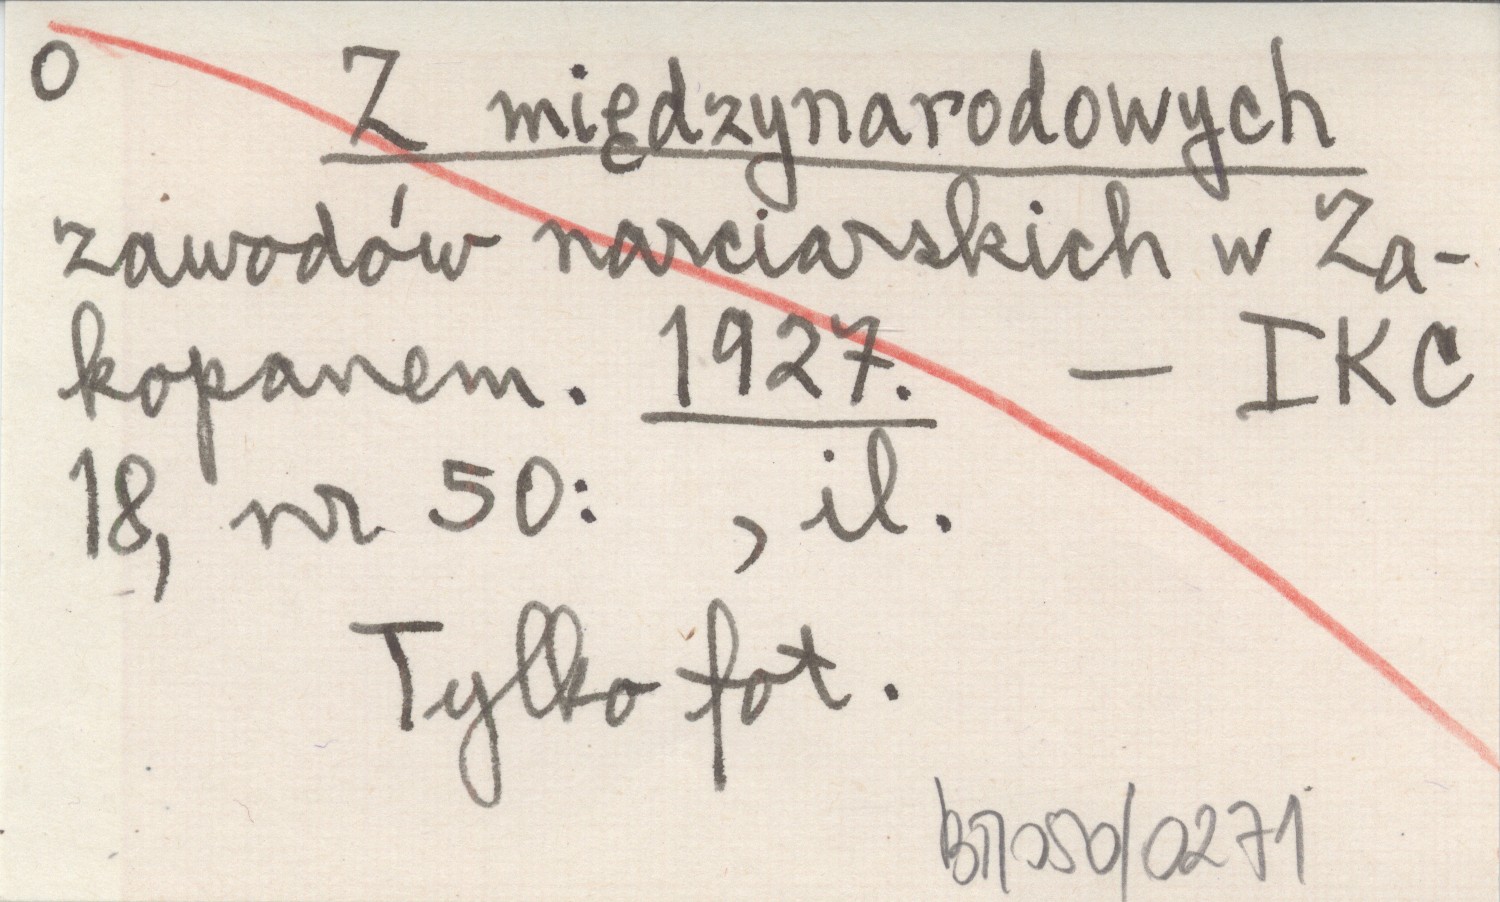 O
Z międzynarodowych
zawodów narciarskich w Za-
kopanem. 1927. — IKC
18, nr 50: , il.
Tylko fot.